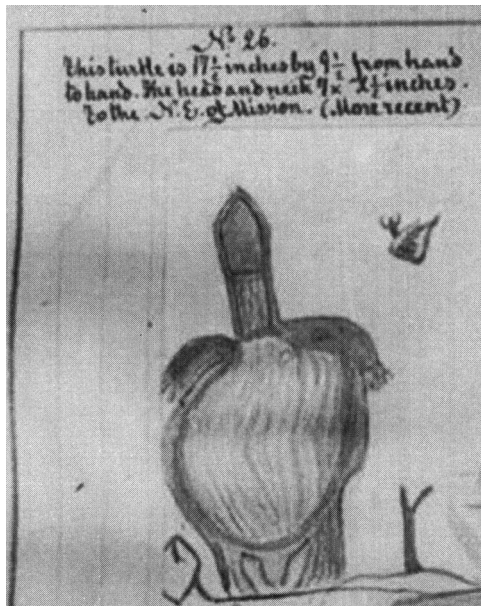 No 26.
This turtle is 17½ inches by 9½ from hand
to hand. The head and neck 7 x 2½ inches.
To the N.E. of Mission. (More recent)